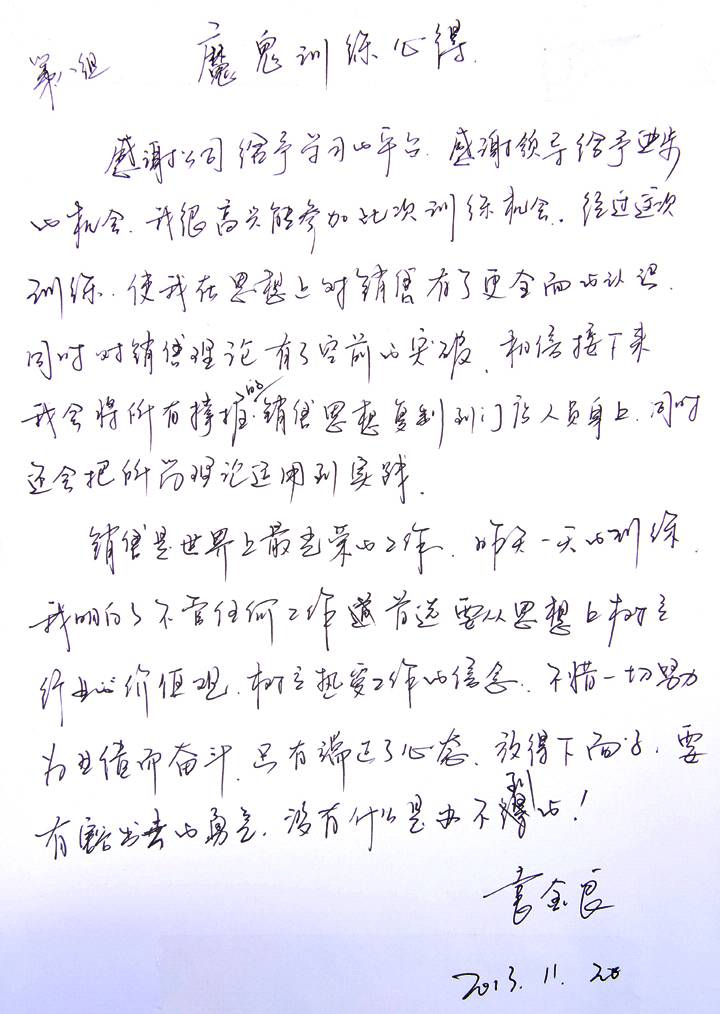 第八组
魔鬼训练心得
感谢公司给予学习的平台,感谢领导给予进步
的机会,我很高兴能参加此次训练机会。经过这次
训练,使我在思想上对销售有了更全面的认识,
同时对销售理论有了空前的突破,相信接下来
我会将所有掌握的销售思想复制到门店人员身上,同时
还会把所学理论运用到实践。
销售是世界上最光荣的工作,昨天一天的训练,
我明白了不管任何工作首选要从思想上树立
行业价值观,树立热爱工作的信念,不惜一切努力
为业绩而奋斗,只有端正了心态,放得下面子,要
有豁出去的勇气,没有什么是办不到的!
袁金良
2013.11.20